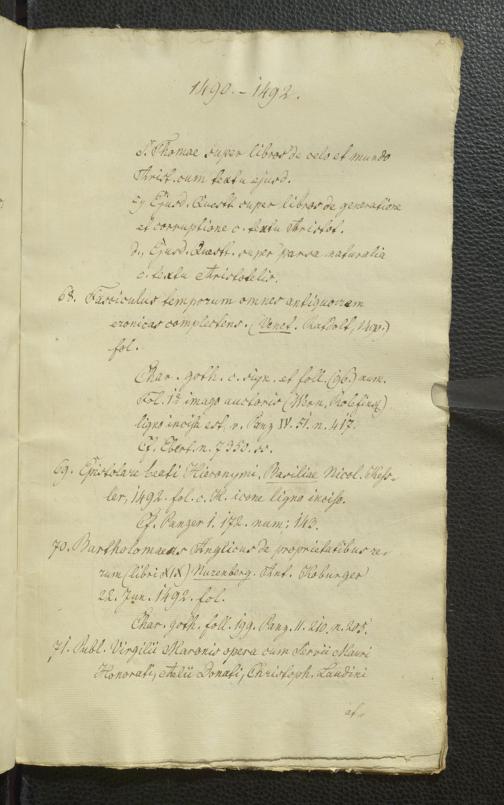 1490.–1492.
S. Thomae super libros de celo et mundo
Arist. cum textu ejusd.
c, Ejusd. Questt. super libros de generatione
et corruptione c. textu Aristot.
d., Ejusd. Quaestt. super parva naturalia
c. textu Aristotelis.
68. Fasciculus temporum omnes antiquorum
cronicas complectens. (Venet. Ratdolt,
fol.
Char. goth. c. sign. et foll. (96.) num.
Fol. 1a imago auctoris (Wern. Rolefink)
ligno incisa est, v. Panz IV. 51. n. 417.
Cf. Ebert. n. 7350. ss.
69. Epistolare beati Hieronymi. Basiliae Nicol. Kess-
ler, 1492. fol. c. icone ligno incisa.
Cf. Panzer I. 172. num: 143.
70. Bartholomaeus Anglicus de proprietatibus re-
rum (libri XIX) Nurenberg. Ant. Koburger
22. Jun. 1492. fol.
Char. goth. foll. 199. Panz. II. 210. n. 205.
71. Publ. Virgilii Maronis opera cum Servii Mauri
Honorati, Aelii Donati, Christoph. Landini
et